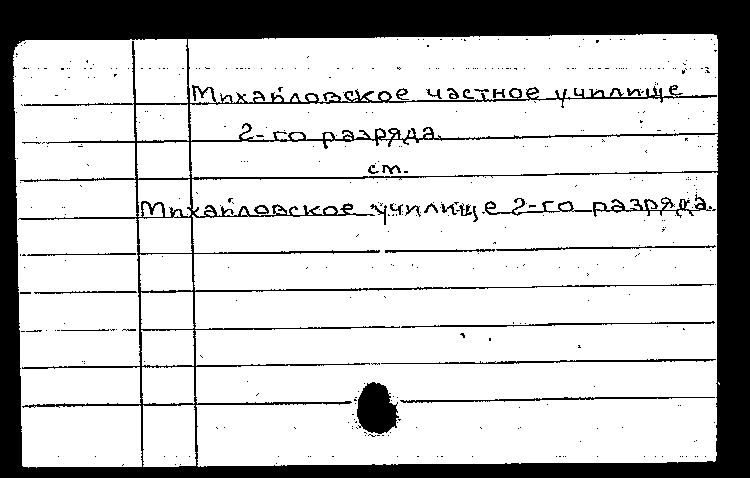 Михайловское частное училище
2-го разряда.
см.
Михайловское училище 2-го разряда.